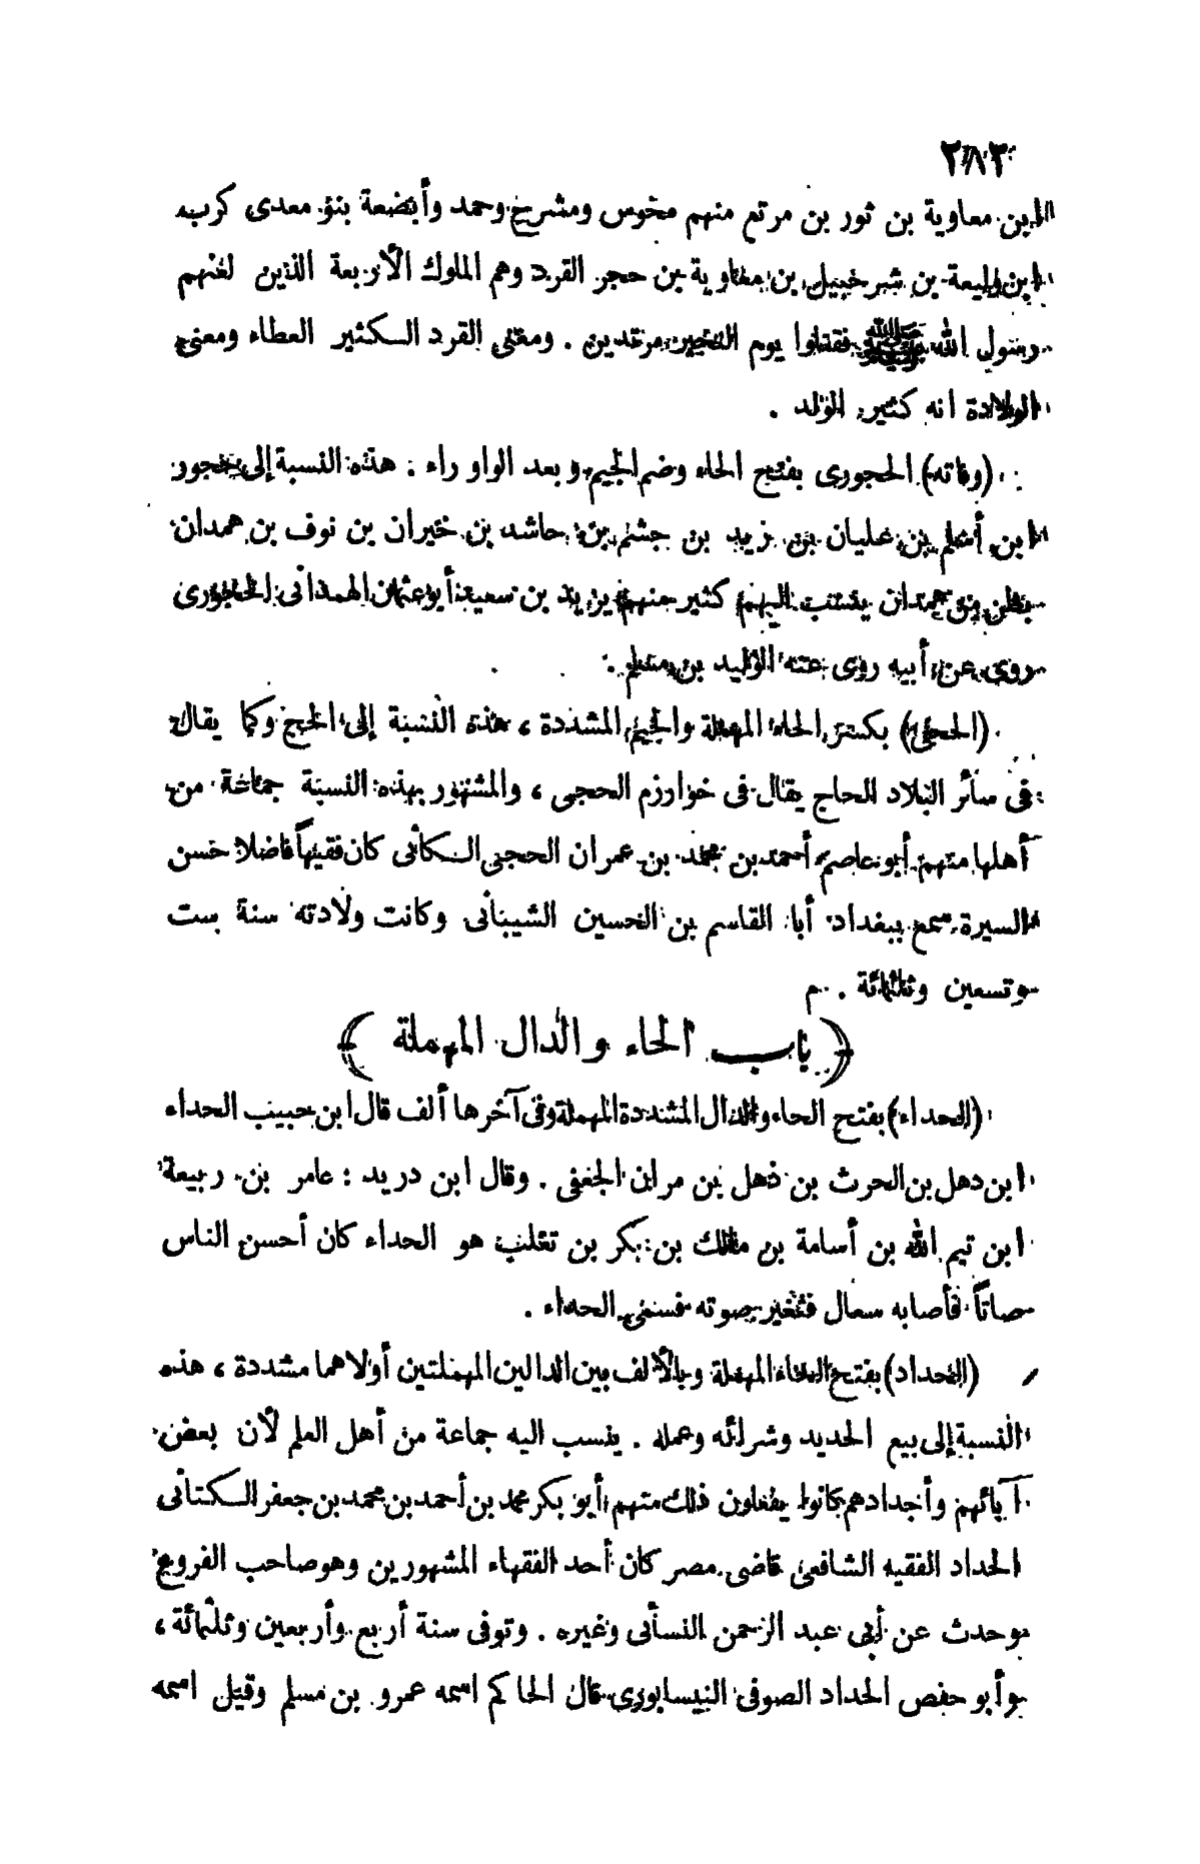 ٢٨٣
ابن معاوية بن ثور بن مرتع منهم مخوس ومشرح وجمد وأبضعة بنو معدى كرب
ابن وليعة بن شرحبيل بن معاوية بن حجر القرد وهم الملوك الأربعة الذين لعنهم
رسول الله ﷺ فقتلوا يوم النجير مرتدين . ومعنى القرد الكثير العطاء ومعنى
الولادة انه كثير الولد .
(وفاته) الحجورى بفتح الحاء وضم الجيم وبعد الواو راء . هذه النسبة إلى حجور
ابن أسلم بن عليان بن زيد بن جشم بن حاشد بن خيران بن نوف بن همدان
بطن من همدان ينسب اليهم كثير منهم يزيد بن سعيد أبو عثمان الهمدانى الحجورى
روى عن أبيه روى عنه الوليد بن مسلم .
(الحجى) بكسر الحاء المهملة والجيم المشددة ، هذه النسبة إلى الحج وكما يقال
فى سائر البلاد الحاج يقال فى خوارزم الحجى ، والمشهور بهذه النسبة جماعة من
أهلها منهم أبو عاصم أحمد بن محمد بن عمران الحجى الكاثى كان فقيهاً فاضلا حسن
السيرة سمع ببغداد أبا القاسم بن الحسين الشيبانى وكانت ولادته سنة ست
وتسعين وثلثمائة . م
﴿ باب الحاء والدال المهملة ﴾
(الحداء) بفتح الحاء والدال المشددة المهملة وفى آخرها ألف قال ابن حبيب الحداء
ابن ذهل بن الحرث بن ذهل بن مران الجعفى . وقال ابن دريد : عامر بن ربيعة
ابن تيم الله بن أسامة بن مالك بن بكر بن تغلب هو الحداء كان أحسن الناس
صاتاً فأصابه سعال فتغير صوته فسمى الحداء .
(الحداد) بفتح الحاء المهملة وبالألف بين الدالين المهملتين أولاهما مشددة ، هذه
النسبة إلى بيع الحديد وشرائه وعمله . ينسب اليه جماعة من أهل العلم لأن بعض
آبائهم وأجدادهم كانوا يفعلون ذلك منهم أبو بكر محمد بن أحمد بن محمد بن جعفر الكتانى
الحداد الفقيه الشافعى قاضى مصر كان أحد الفقهاء المشهورين وهو صاحب الفروع
وحدث عن أبى عبد الرحمن النسأئى وغيره . وتوفى سنة أربع وأربعين وثلثمائة ،
وأبو حفص الحداد الصوفى النيسابورى قال الحاكم اسمه عمرو بن مسلم وقيل اسمه